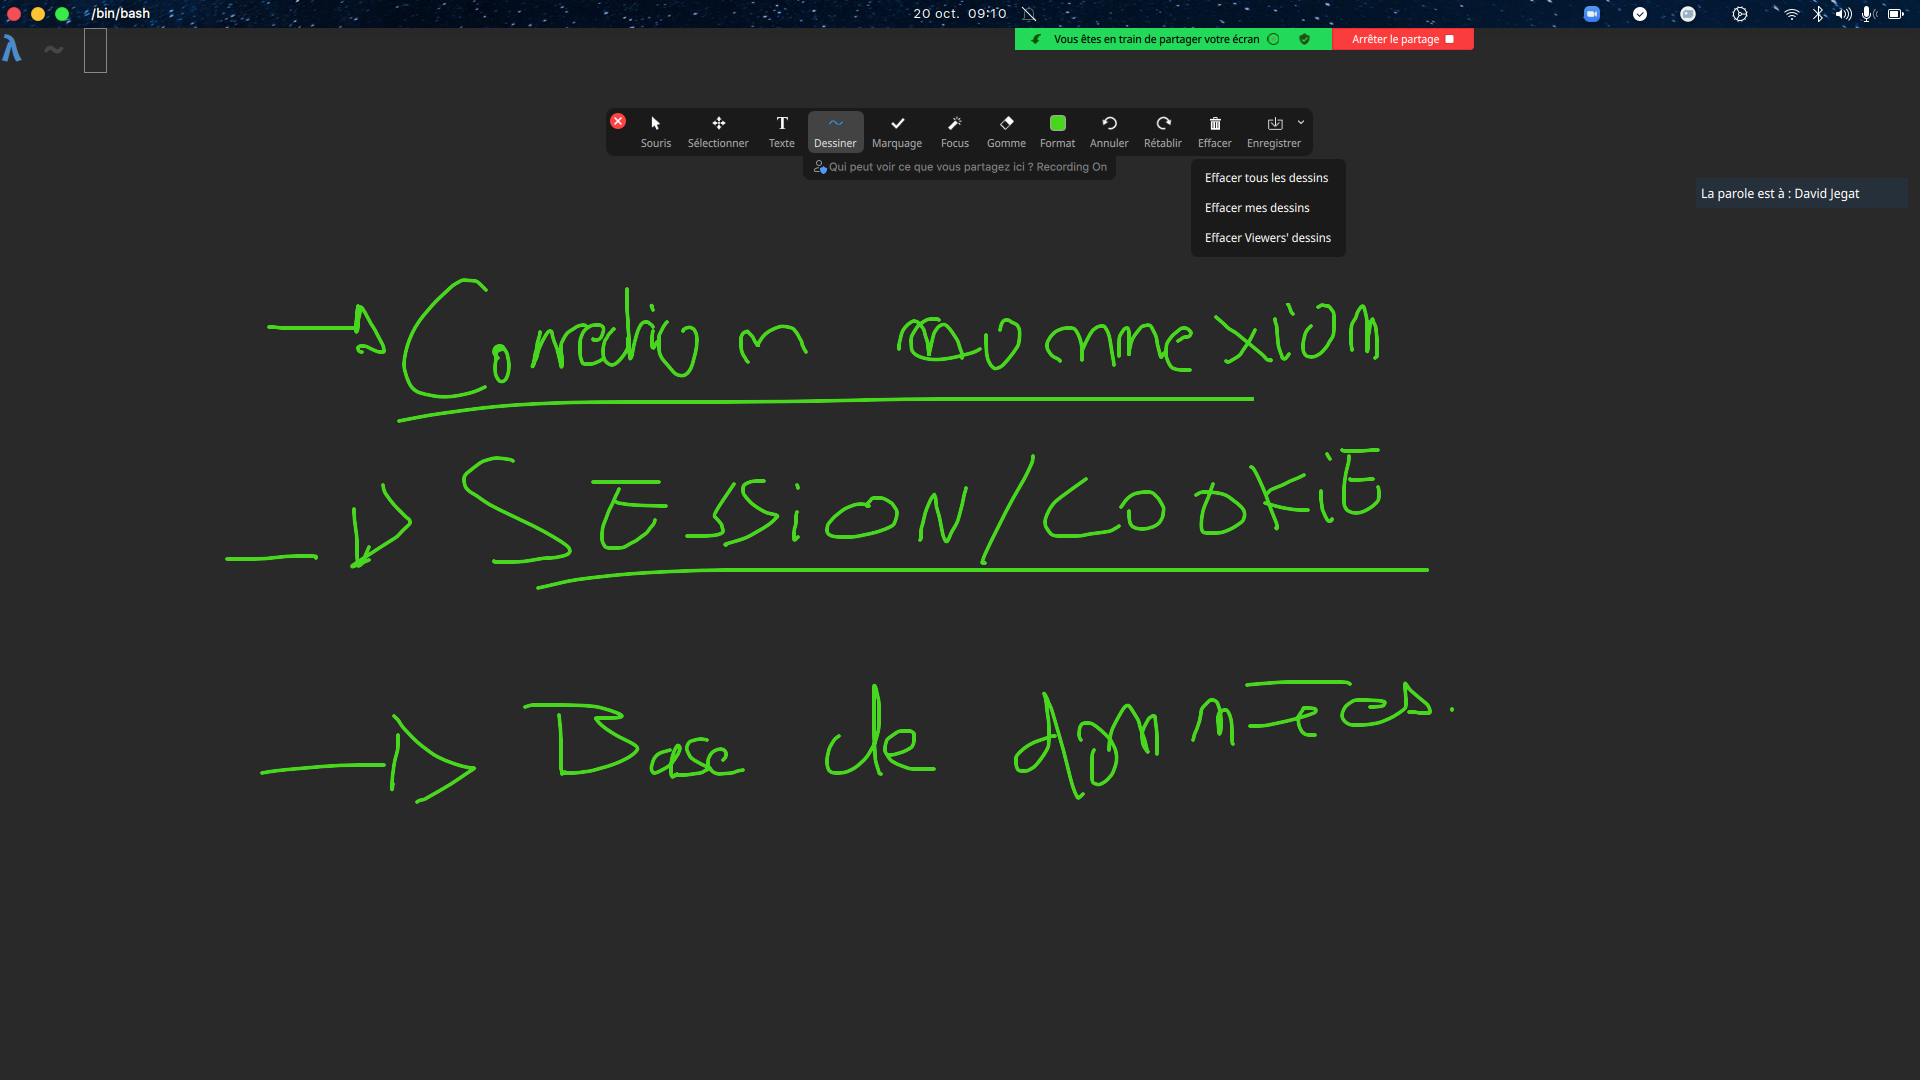 /bin/bash 20 oct. 09:10
λ ~
Vous êtes en train de partager votre écran Arrêter le partage
Souris Sélectionner Texte Dessiner Marquage Focus Gomme Format Annuler Rétablir Effacer Enregistrer
Qui peut voir ce que vous partagez ici ? Recording On
Effacer tous les dessins
Effacer mes dessins
Effacer Viewers' dessins
La parole est à : David Jegat
SESSiON/COOKiE
Base de données.